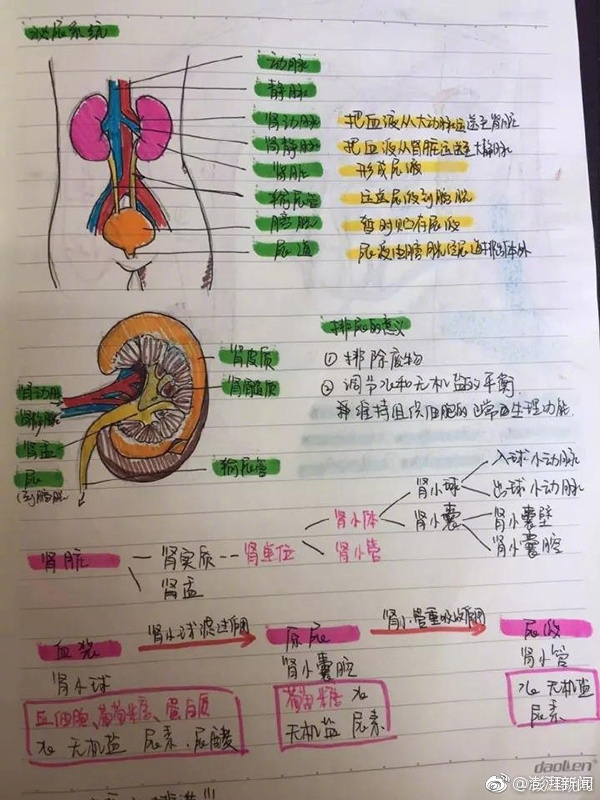 泌尿系统
动脉
静脉
肾动脉 把血液从大动脉运送至肾脏
肾静脉 把血液从肾脏运送至大静脉
肾脏 形成尿液
输尿管 运送尿液到膀胱
膀胱 暂时贮存尿液
尿道 尿液由膀胱经尿道排出体外
排尿的意义
肾皮质
① 排除废物
肾髓质
② 调节水和无机盐的平衡
肾动脉
肾静脉
维持组织细胞的正常生理功能.
肾盂
尿
(到膀胱)
输尿管
入球小动脉
肾小球
出球小动脉
肾小体
肾小囊
肾小囊壁
肾小囊腔
肾脏 肾实质 肾单位
肾小管
肾盂
血浆 肾小球滤过作用 原尿 肾小管重吸收作用 尿液
肾小球 肾小囊腔 肾小管
血细胞、葡萄糖、蛋白质
水 无机盐 尿素、尿酸
葡萄糖 水
无机盐 尿素
水 无机盐
尿素
daolien
@澎湃新闻